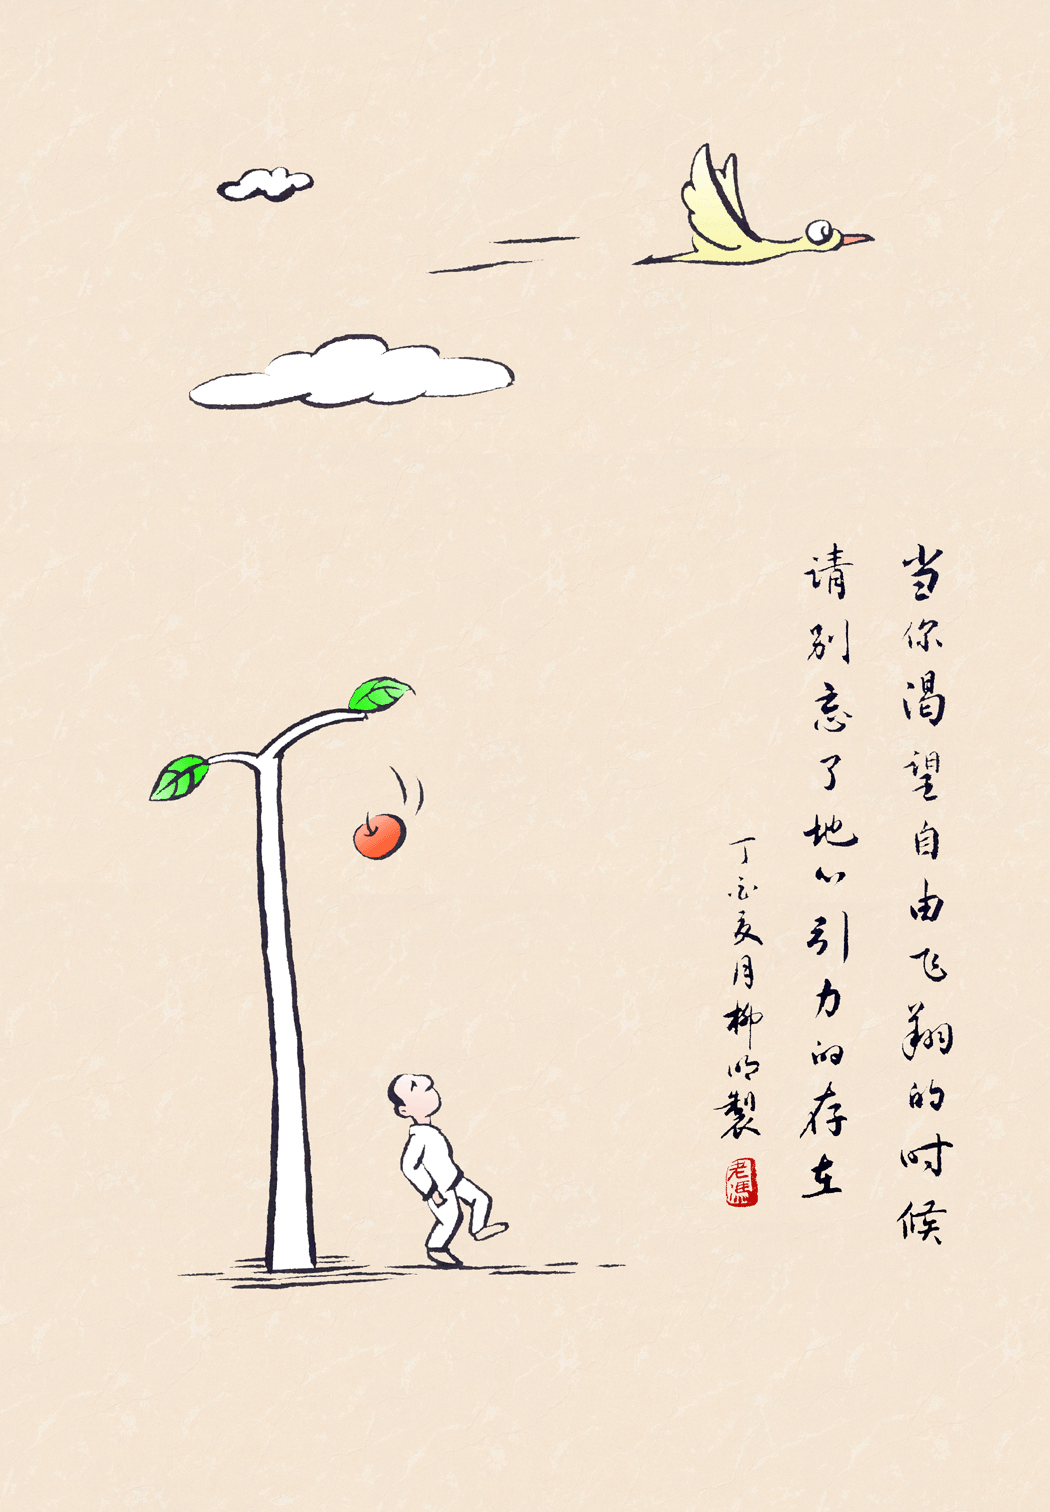 当你渴望自由飞翔的时候
请别忘了地心引力的存在
丁酉夏月柳鸣製
老冯